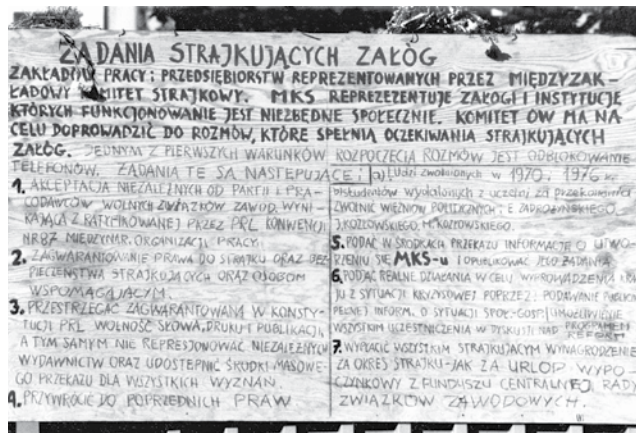 ŻĄDANIA STRAJKUJĄCYCH ZAŁÓG
ZAKŁADÓW PRACY I PRZEDSIĘBIORSTW REPREZENTOWANYCH PRZEZ MIĘDZYZAK-
ŁADOWY KOMITET STRAJKOWY. MKS REPREZENTUJE ZAŁOGI I INSTYTUCJE
KTÓRYCH FUNKCJONOWANIE JEST NIEZBĘDNE SPOŁECZNIE. KOMITET ÓW MA NA
CELU DOPROWADZIĆ DO ROZMÓW, KTÓRE SPEŁNIĄ OCZEKIWANIA STRAJKUJĄCYCH
ZAŁÓG. JEDNYM Z PIERWSZYCH WARUNKÓW ROZPOCZĘCIA ROZMÓW JEST ODBLOKOWANIE
TELEFONÓW. ŻĄDANIA TE SĄ NASTĘPUJĄCE:
1. AKCEPTACJA NIEZALEŻNYCH OD PARTII I PRA-
CODAWCÓW WOLNYCH ZWIĄZKÓW ZAWOD. WYNI-
KAJĄCA Z RATYFIKOWANEJ PRZEZ PRL KONWENCJI
NR 87 MIĘDZYNAR. ORGANIZACJI PRACY.
2. ZAGWARANTOWANIE PRAWA DO STRAJKU ORAZ BEZ-
PIECZEŃSTWA STRAJKUJĄCYCH ORAZ OSOBOM
WSPOMAGAJĄCYM.
3. PRZESTRZEGAĆ ZAGWARANTOWANĄ W KONSTY-
TUCJI PRL WOLNOŚĆ SŁOWA, DRUKU I PUBLIKACJI,
A TYM SAMYM NIE REPRESJONOWAĆ NIEZALEŻNYCH
WYDAWNICTW ORAZ UDOSTĘPNIĆ ŚRODKI MASOWE-
GO PRZEKAZU DLA WSZYSTKICH WYZNAŃ.
4. PRZYWRÓCIĆ DO POPRZEDNICH PRAW
a) Ludzi zwolnionych w 1970, 1976 r.
studentów wydalonych z uczelni za przekonania
ZWOLNIĆ WIĘŹNIÓW POLITYCZNYCH: E. ZADROŻYŃSKIEGO
J. KOZŁOWSKIEGO, M. KOZŁOWSKIEGO.
5. PODAĆ W ŚRODKACH PRZEKAZU INFORMACJE O UTWO-
RZENIU SIĘ MKS-u I OPUBLIKOWAĆ JEGO ŻĄDANIA
6. PODJĄĆ REALNE DZIAŁANIA W CELU WYPROWADZENIA KRA-
JU Z SYTUACJI KRYZYSOWEJ POPRZEZ: PODAWANIE PUBLICZ.
PEŁNEJ INFORM. O SYTUACJI SPOŁ.-GOSP. UMOŻLIWIENIE
WSZYSTKIM UCZESTNICZENIA W DYSKUSJI NAD PROGRAMEM
REFORM
7. WYPŁACIĆ WSZYSTKIM STRAJKUJĄCYM WYNAGRODZENIE
ZA OKRES STRAJKU-JAK ZA URLOP WYPO-
CZYNKOWY Z FUNDUSZU CENTRALNEJ RADY
ZWIĄZKÓW ZAWODOWYCH.